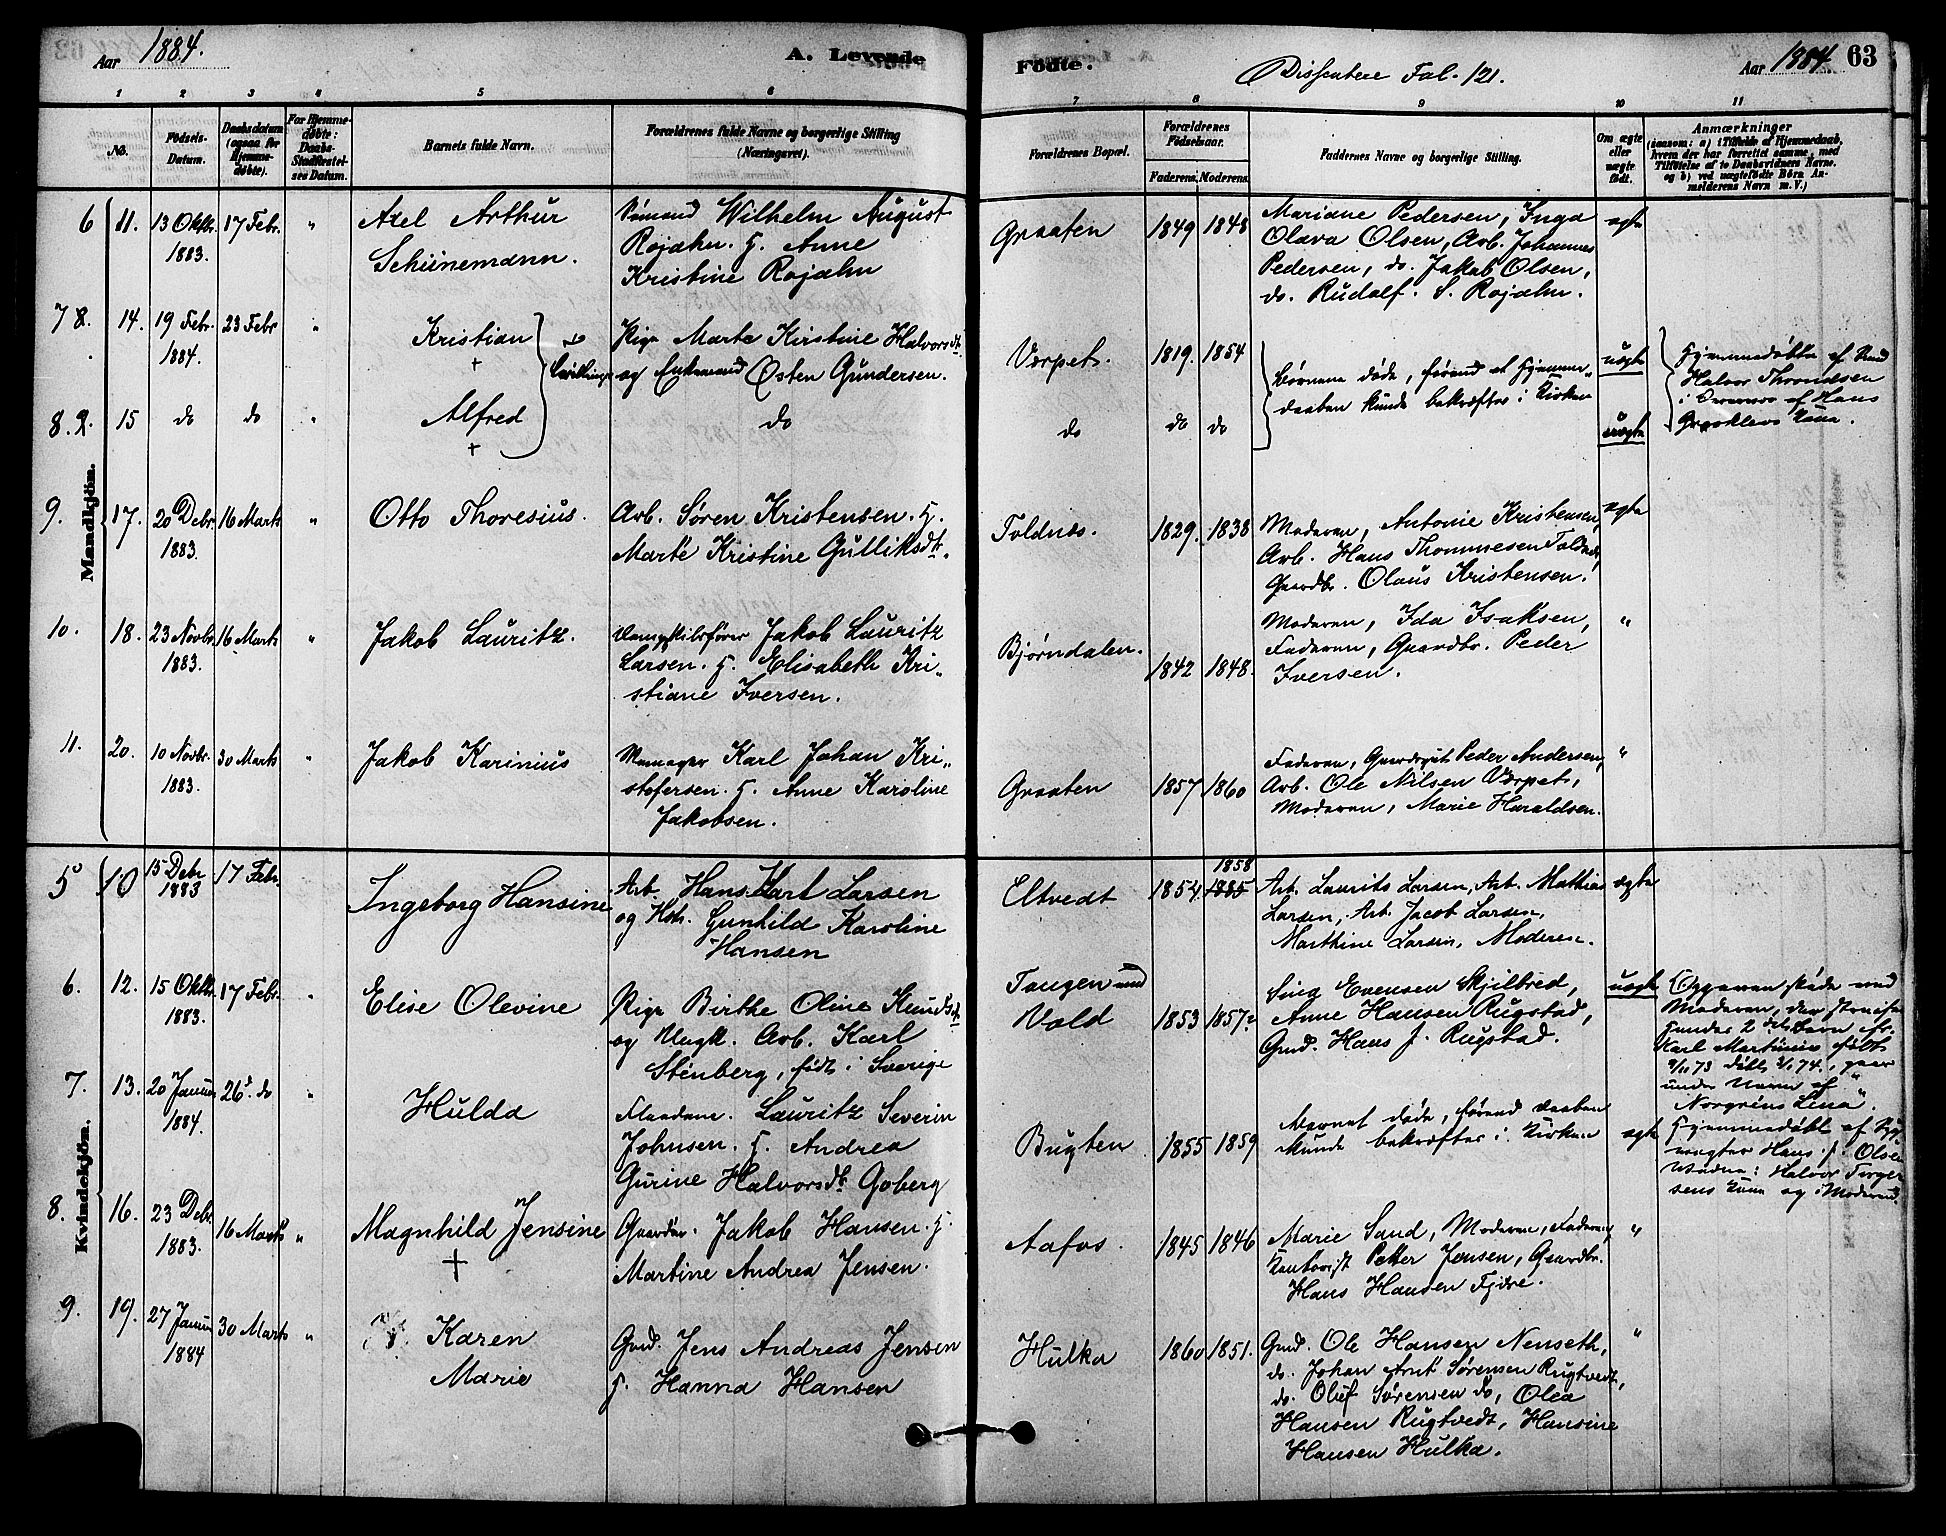 Aar 1884.
A. Levende
Fødte.
Dissentere Fol. 121.
Aar 1884.
63
1 2 3 4 5 6 7 8 9 10 11
No.
Fødsels-Datum.
Daabsdatum (ogsaa for Hjemmedøbte).
For Hjemmedøbte: Daabs-Stadfæstelses Datum.
Barnets fulde Navn.
Forældrenes fulde Navne og borgerlige Stilling
(Næringsvei).
Forældrenes Bopæl.
Forældrenes Fødselsaar.
Faderens. Moderens.
Faddernes Navne og borgerlige Stilling.
Om ægte eller uægte født.
Anmærkninger
(saasom: a) i Tilfælde af Hjemmedaab, hvem der har forrettet samme, med Tilføielse af to Daabsvidners Navne. og b) ved uægtefødte Børn Anmelderens Navn m. V.)
Mandkjön.
6 11. 13 Oktbr. 1883. 17 Febr. " Axel Arthur
Schünemann.
Sømand Wilhelm August
Rojahn. H. Anne
Kristine Rojahn
Graaten 1849 1848
Mariane Pedersen, Inga
Olava Olsen, Arb. Johannes
Pedersen, do. Jakob Olsen,
do. Rudolf S. Rojahn.
ægte
7 14. 19 Febr. 1884. 23 Febr " Kristian
+
Tvillinger
Pige Marte Kirstine Halvorsdt.
og Enkemand Østen Gundersen.
Vorpet. 1819. 1854
Børnene døde, førend et Hjemme-
daaben kunde bekræftes i Kirken
uægte
Hjemmedøbte af
Halvor Throndsen
i Overvær af Hans
Kone.
8. 15 do do " Alfred
+
do
do do do
uægte
9. 17. 20 Debr. 1883. 16 Marts " Otto Thoresius.
Arb. Søren Kristensen. H.
Marte Kristine Gulliksdt.
Toldnæs. 1829. 1838
Moderen, Antonie Kristensen,
Arb. Hans Thommesen Toldnæs,
Gaardbr. Olaus Kristensen.
ægte
10. 18. 23 Novbr. 1883. 16 Marts " Jakob Lauritz.
Dampskibsfører Jakob Lauritz
Larsen. H. Elisabeth Kri-
stiane Iversen.
Bjørndalen. 1842 1848.
Moderen, Ida Isaksen,
Faderen, Gaardbr. Peder
Iversen.
"
11. 20. 10 Novbr. 1883. 30 Marts " Jakob Karinius
Karl Johan Kri-
stofersen. H. Anne Karoline
Jakobsen.
Graaten 1857 1860
Faderen, Peder Andersen,
Arb. Ole Nilsen Vorpet,
Moderen, Marie Haraldsen.
"
Kvindekjön.
5 10 15 Debr 1883 17 Febr. Ingeborg Hansine
Arb. Hans Karl Larsen
og Hstr. Gunhild Karoline
Hansen
Eltvedt 1854 1858
1885
Arb. Laurits Larsen, Arb. Mathias
Larsen, Arb. Jacob Larsen,
Marthine Larsen, Moderen.
ægte
6. 12. 15 Oktbr. 1883. 17 Febr. " Elise Olevine
Pige Birthe Oline Knudsdt.
og Ungk. Arb. Karl
Stenberg, født i Sverige
Tangen
Vold 1853 1857
Evensen Skjelbred,
Anne Hansen Rugstad,
Gmd. Hans J. Rugstad.
uægte
Opgaven skede ved
Moderen,
2
Karl Martinius, født
9/11 73 døbt 2/1 74.,
under Navn af
"Norgrens Lina".
7. 13. 20 Januar 1884. 26de do " Hulda
Lauritz Severin
Johnsen. H. Andrea
Gurine Halvorsdt. Goberg
Bugten 1855 1859
Barnet døde, førend daaben
kunde bekræftes i Kirken
ægte
Hjemmedøbt af
Hans J. Olsen
Vidner: Halvor Torger-
sens Kone og Moderen.
8. 16. 23 Debr. 1883. 16 Marts " Magnhild Jensine
+
Gaardbr. Jakob Hansen. H.
Martine Andrea Jensen.
Aafos. 1845 1846
Marie Sand, Moderen, Faderen,
Kontorist Petter Jensen, Gaardbr.
Hans Hansen
"
9. 19. 27 Januar 1884 30 Marts " Karen
Marie
Gmd. Jens Andreas Jensen
H. Hanna Hansen
Hulka 1860 1851.
Gmd. Ole Hansen Nenseth,
do. Johan Arnt Sørensen Rugtvedt,
do. Oluf Sørensen do, Olea
Hansen Rugtvedt, Hansine
Hansen Hulka.
"